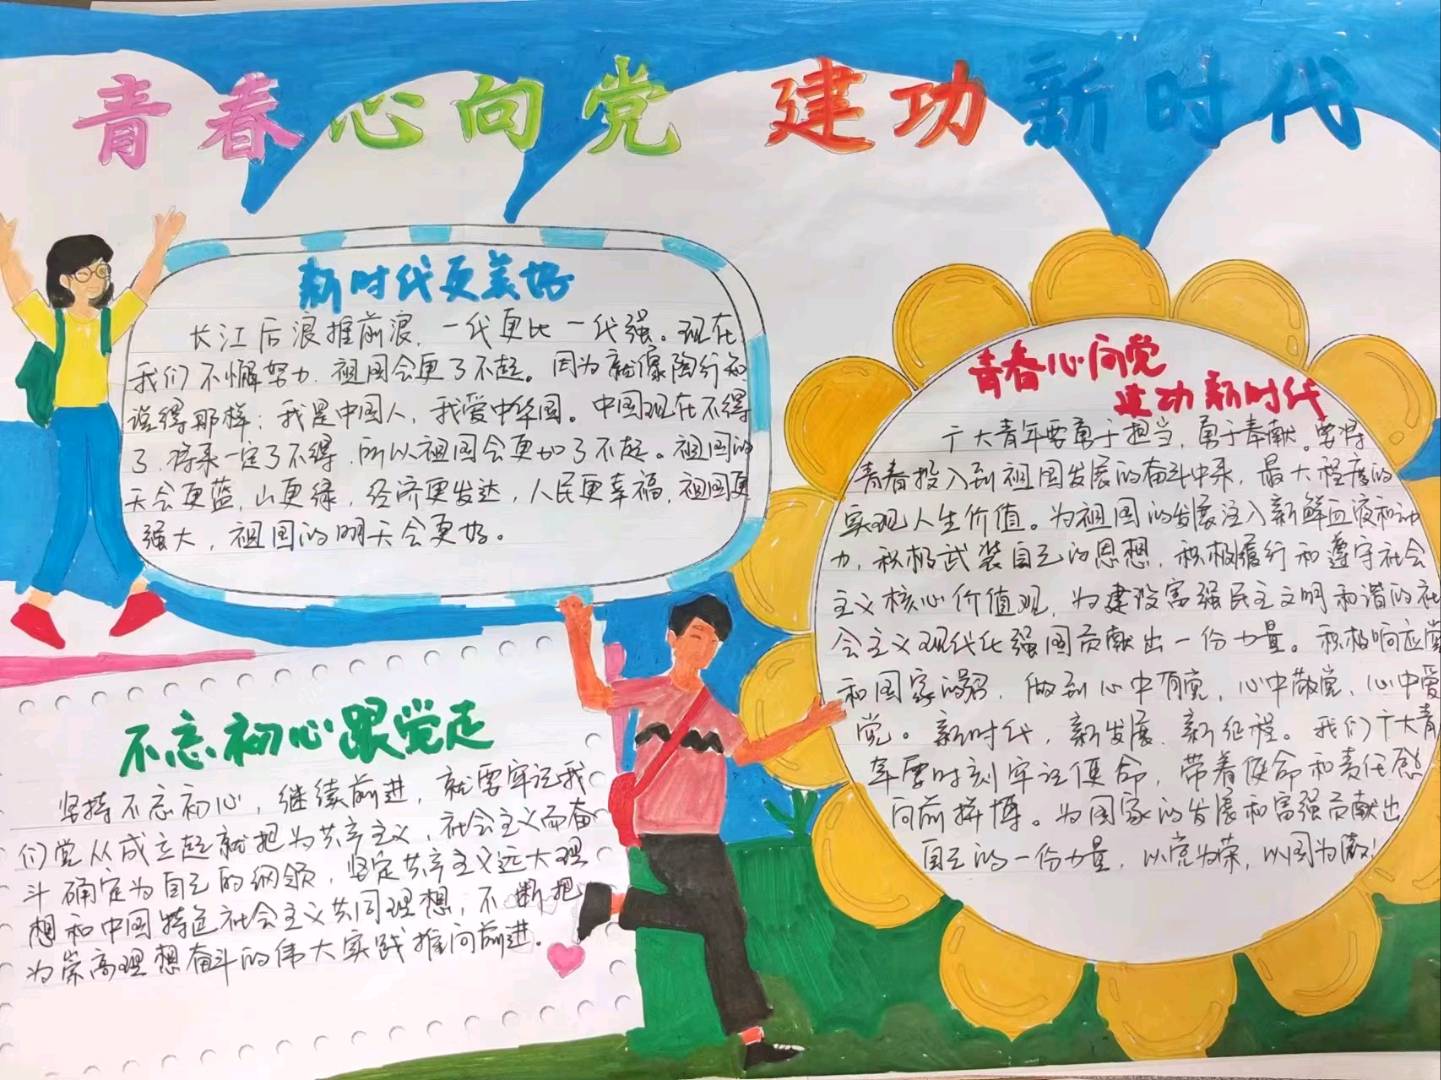 青春心向党 建功新时代
新时代更美好
长江后浪推前浪，一代更比一代强。现在
我们不懈努力，祖国会更了不起。因为就像陶行知
说得那样：我是中国人，我爱中华国。中国现在不得
了，将来一定了不得，所以祖国会更加了不起。祖国的
天会更蓝，山更绿，经济更发达，人民更幸福，祖国更
强大，祖国的明天会更好。
青春心向党
建功新时代
广大青年要勇于担当，勇于奉献。要将
青春投入到祖国发展的奋斗中来，最大程度的
实现人生价值。为祖国的发展注入新鲜血液和动
力，积极武装自己的思想，积极履行和遵守社会
主义核心价值观，为建设富强民主文明和谐的社
会主义现代化强国贡献出一份力量。积极响应党
和国家的号，做到心中有党，心中敬党，心中爱
党。新时代，新发展，新征程。我们广大青
年要时刻牢记使命，带着使命和责任感
向前拼博。为国家的发展和富强贡献出
自己的一份力量，以党为荣，以国为傲！
不忘初心跟党走
坚持不忘初心，继续前进，就要牢记我
们党从成立起就把为共产主义，社会主义而奋
斗确定为自己的纲领，坚定共产主义远大理
想和中国特色社会主义共同理想，不断把
为崇高理想奋斗的伟大实践推向前进.